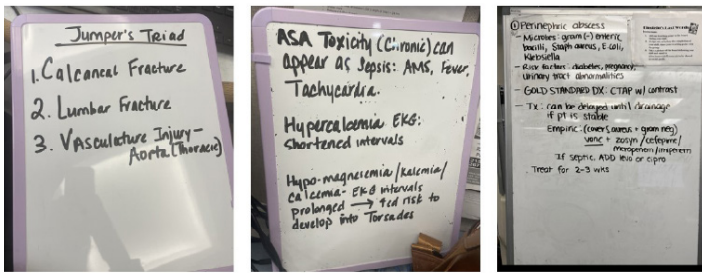 Jumper's Triad
1. Calcaneal Fracture
2. Lumbar Fracture
3. Vasculature Injury-
Aorta (Thoracic)
ASA Toxicity (Chronic) can
appear as Sepsis: AMS, Fever,
Tachycardia.
Hypercalcemia EKG:
shortened intervals
Hypo-magnesemia/kalemia/
calcemia- EKG intervals
prolonged → ↑ed risk to
develop into Torsades
① Perinephric abscess
- Microbes: gram (-) enteric
bacilli, Staph aureus, E.coli,
Klebsiella
- Risk factors: diabetes, pregnancy,
urinary tract abnormalities
- GOLD STANDARD DX: CTAP w/ contrast
- Tx: can be delayed until drainage
if pt is stable
Empiric: (cover S. aureus + gram neg)
vanc + zosyn/cefepime/
meropenem/imipenem
If septic ADD levo or cipro
Treat for 2-3 wks